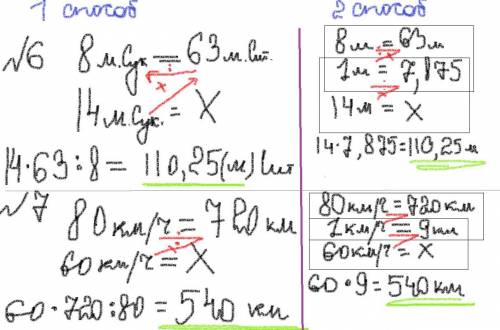 1 способ
№6 8 м.сук = 63 м.шт.
14 м.сук. = X
14·63:8 = 110,25(м) шт
№7 80 км/ч = 720 км
60 км/ч = X
60·720:80 = 540 км
2 способ
8м = 63м
1м = 7,175
14м = X
14·7,875=110,25 м
80 км/ч = 720 км
1 км/ч = 9 км
60 км/ч = X
60·9 = 540 км